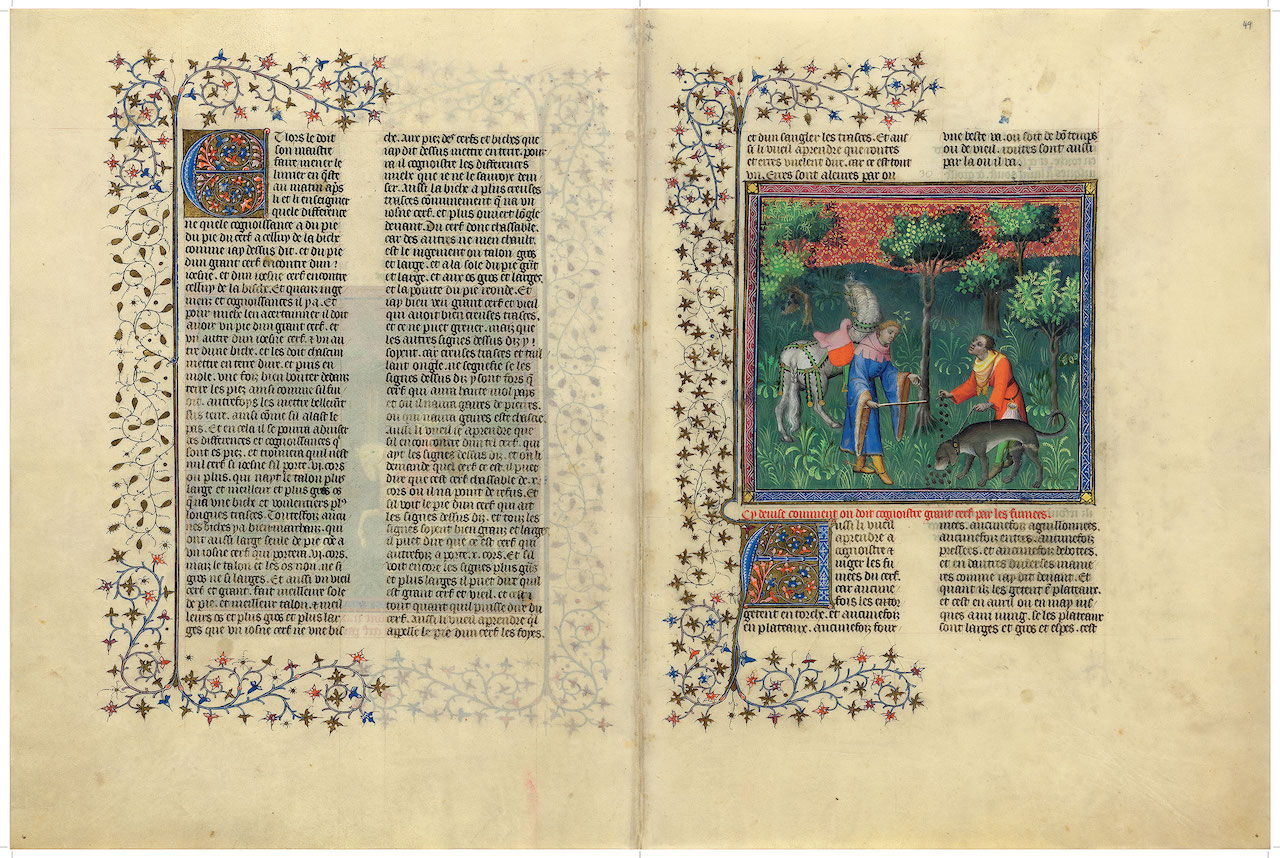 Et lors le doit
son maistre
faire mener le
limier en qste
au matin aps
li et li enseigner
quele difference
ne quele cognoissance a du pie
du pie du cerf a celluy de la biche
comme iay dessus dit. et du pie
dun grant cerf encontre dun
ioesne. et dun ioesne cerf encontre
celluy de la biche. Et quanz iuge
menz et cognoissances il y a. Et
pour mielx len acertainner il doit
auoir vn pie dun grant cerf. et
vn autre dun ioesne cerf. et vn au
tre dune biche. et les doit chascun
mettre en terre dure. et puis en
mole. vne foiz bien bouter dedanz
terre les piez ainsi comme sil fui
oit. autrefoys les mettre bellemt
sus terre. ainsi come sil alast le
pas. Et en cela il se pourra aduiser
des differences et cognoissances q
sont es piez. et trouuera quil nest
nul cerf si ioesne sil porte .vj. cors
ou plus. qui nayt le talon plus
large et meilleur et plus gros os
qua vne biche et voulentiers pl
longues trasces. Toutesfoiz aucu
nes biches y a bien marchanz. qui
ont aussi large seule de pie coe a
vn iosne cerf qui portera .vj. cors.
maiz le talon et les os non. ne si
gros ne si larges. Et aussi vn vieil
cerf et grant. fait meilleur sole
de pie. et meilleur talon. et meil
leurs os et plus gros et plus lar
ges que vn iosne cerf ne vne bis
che. Aux piez des cerfs et biches que
iay dit dessus mettre en terre. pour
ra il cognoistre les differences
mielx que ie ne le sauroye deui
ser. Aussi la biche a plus creuses
trasces communement q na vn
iosne cerf. et plus ouuert logle
deuant. Du cerf donc chassable.
car des autres ne men chault.
est le iugement ou talon gros
et large. et a la sole du pie grat
et large. et aux os gros et larges.
et la pointe du pie ronde. Et
iay bien veu grant cerf et vieil
qui auoit bien creuses trasces.
et ce ne puet greuer. maiz que
les autres signes dessus diz y
soyent. car creuses trasces et tail
lant ongle. ne segnefie se les
signes dessus diz y sont fors q
cerf qui aura hante mol pays
et ou il naura gaires de pierres.
ou qui naura gaires este chascie.
Aussi li vueil ie aprendre que
sil encontroit dun tel cerf. qui
ayt les signes dessus diz. et on li
demande quel cerf ce est. il puet
dire que cest cerf chassable de .x.
cors ou il na point de refus. Et
sil voit le pie dun cerf qui ait
les signes dessus diz. et touz les
signes soyent bien granz et larges
il puet dire que ce est cerf qui
autrefoiz a porte .x. cors. Et sil
voit encore les signes plus gros
et plus larges il puet dire quil
est grant cerf et vieil. et cest
tout quant quil puisse dire du
cerf. Aussi li vueil aprendre ql
appelle le pie dun cerf les foyes.
49
et dun sangler les trasces. Et auss
si li vueil aprendre que routes
et erres vuelent dire. car ce est tout
vn. Erres sont aleures par ou
vne beste va. ou soit de bo temps
ou de vieil. routes sont aussi
par la ou il va.
Cy deuise comment on doit cognoistre grant cerf par les fumees.
Aussi li vueil
aprendre a
cognoistre et
iuger les fu
mees du cerf.
car aucune
fois les entor
getent en torche. et aucunefoiz
en plateaux. aucunefoiz four
mees. aucunefoiz aguillonnees.
aucunefoiz entees. aucunefoiz
pressees. et aucunefoiz desioites.
et en dautres diuerses manie
res comme iay dit deuant. Et
quant ilz les getent e plateaux.
et cest en auril ou en may ius
ques a mi iuing. se les plateaux
sont larges et gros et espes. cest